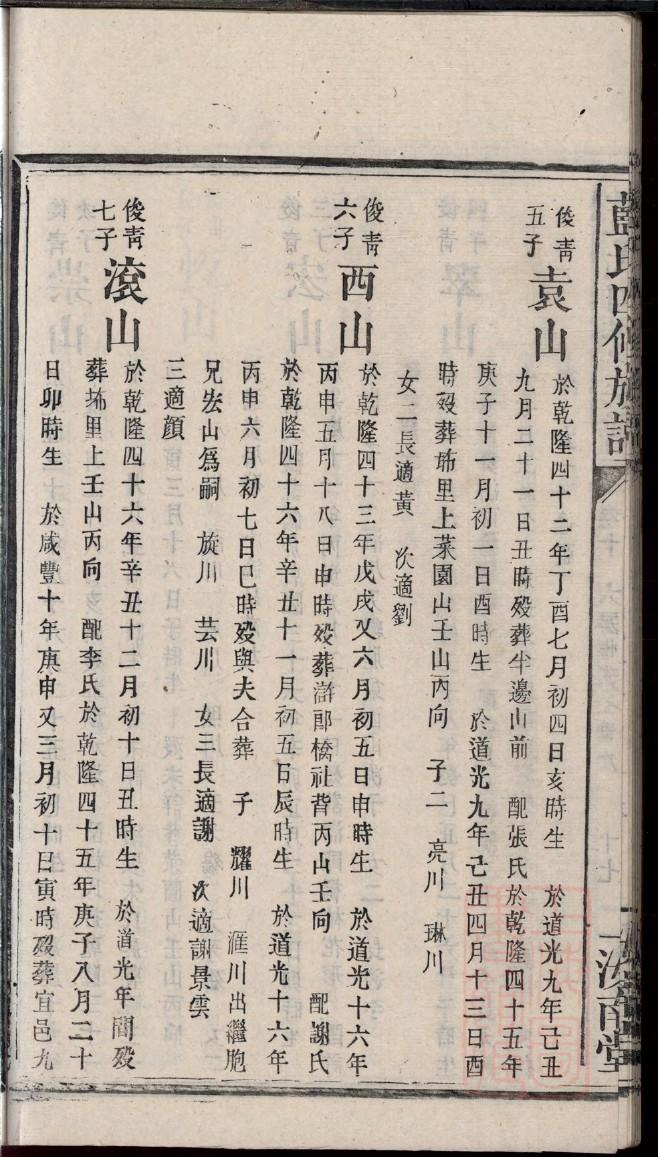 藍氏四修族譜
汝南堂
俊青五子 袁山
於乾隆四十二年丁酉七月初四日亥時生 於道光九年己丑
九月二十一日丑時殁葬半邊山前 配張氏於乾隆四十五年
庚子十一月初一日酉時生 於道光九年己丑四月十三日酉
時殁葬㘵里上菜園山壬山丙向 子二 亮川 琳川
女二長適黃 次適劉
俊青六子 西山
於乾隆四十三年戊戌又六月初五日申時生 於道光十六年
丙申五月十八日申時殁葬滸郎橋社背丙山壬向 配謝氏
於乾隆四十六年辛丑十一月初五日辰時生 於道光十六年
丙申六月初七日巳時殁與夫合葬 子 耀川 滙川出繼胞
兄宏山爲嗣 旋川 芸川 女三長適謝 次適謝景雲
三適顔
俊青七子 滾山
於乾隆四十六年辛丑十二月初十日丑時生 於道光年間殁
葬㘵里上壬山丙向 配李氏於乾隆四十五年庚子八月二十
日卯時生 於咸豐十年庚申又三月初十日寅時殁葬宜邑九